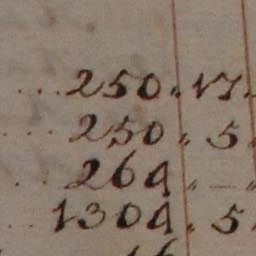 ...250.17.
...250.5.
...269.—.
..1309.5.
16